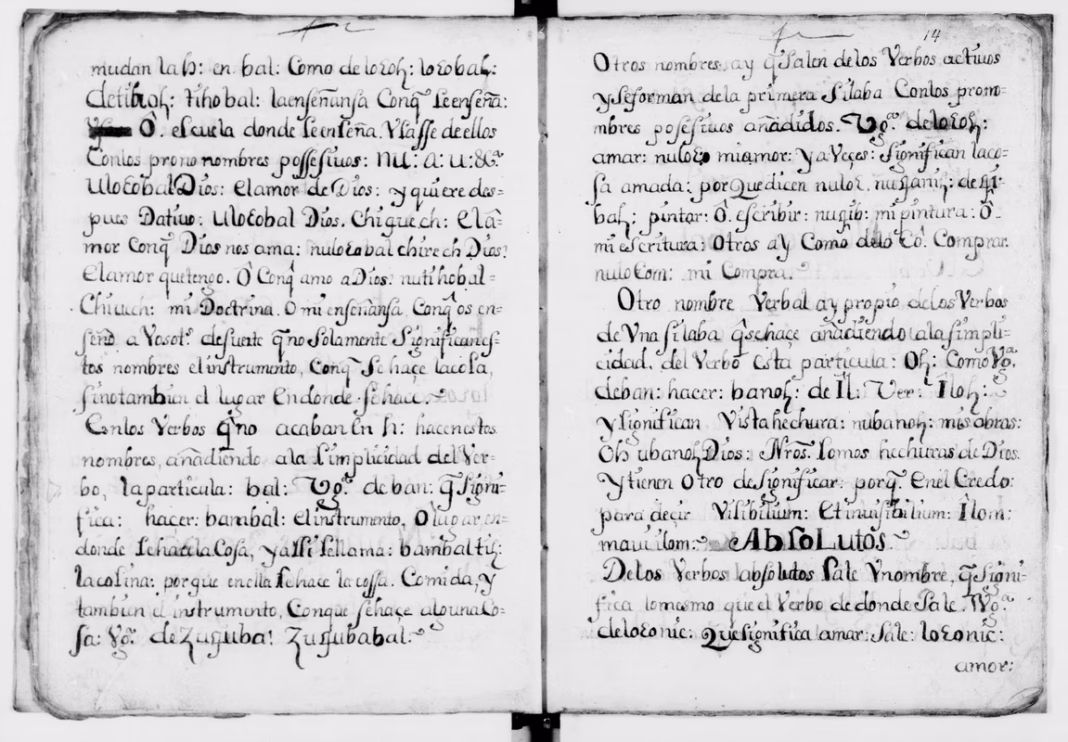 mudan la h: en bal: Como de loɛoh: loɛobal:
de tihoh: tihobal: la enseñansa Conq̃ se enseña:
Ô. escuela donde se enseña. Vsasse de ellos
Con los pronombres possesiuos: nu: a: u: &cª
Uloɛobal Dios: el amor de Dios: y quiere des=
pues Datiuo: Uloɛobal Dios. Chiquech: el a=
mor Conq̃ Dios nos ama: nuloɛobal chirech Dios:
el amor que tengo. O Conq̃ amo a Dios: nutihobal=
Chiuech: mi Doctrina. O mi enseñansa Conq̃ os en=
seño a Vosotˢ. de suerte q̃ no solamente significan es=
tos nombres el instrumento, Conq̃ se haçe la cosa,
sino tambien el lugar en donde se haçe.
En los Verbos q̃ no acaban en h: hacen estos
nombres, añadiendo a la simplicidad del Ver=
bo, la particula: bal: Vgª. de ban: q̃ signi=
fica: hacer: bambal: el instrumento, O lugar en=
donde se hace la Cosa, y assi se llama: bambal tih:
la cosina: porque en ella se hace la cossa. Comida, y
tambien el instrumento, Con que se haçe alguna Co=
sa: Vgª. de Zuguba: Zugubabal.
14
Otros nombres ay q̃ salen de los Verbos actiuos
y se forman de la primera silaba Con los prono=
mbres posesiuos añadidos. Vgª. de loɛoh:
amar: nuloɛo mi amor: y a Veçes: significan la co=
sa amada: por que dicen nuloɛ. de
bah: pintar: Ô. escribir: nugib: mi pintura: Ô.
mi escritura: Otros ay Como de lo Cô. Comprar.
nuloCom: mi Compra.
Otro nombre Verbal ay propio de los Verbos
de Vna silaba q̃ se haçe añadiendo a la simpli=
cidad. del Verbo esta particula: Oh: Como Vgª.
de ban: hacer: banoh: de Il: Ver: Iloh:
y significan Vista hechura: nubanoh: mis obras:
Oh ubanoh Dios: Nrõs. somos hechuras de Dios.
Y tienen Otro de significar: porq̃. en el Credo:
para decir Visibilium: Et inuisibilium: Ilom:
maui ilom: Absolutos.
De los Verbos absolutos sale Vnombre, q̃ signi=
fica lo mesmo que el Verbo de donde sale. Vgª.
de loɛonic: Que significa amar: sale: loɛonic:
amor: